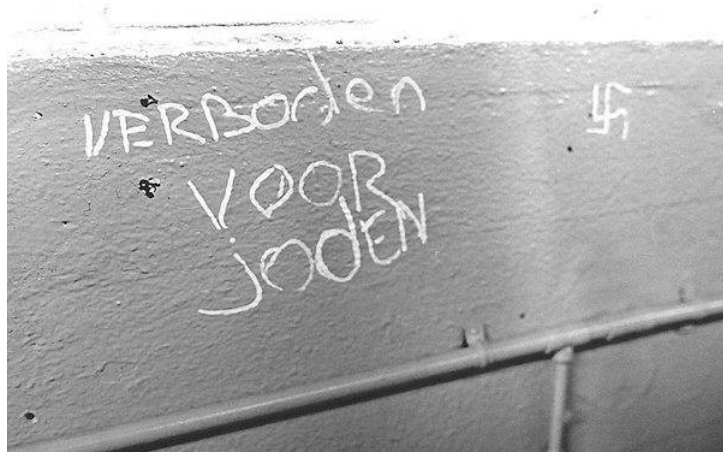 VERBODEN
VOOR
joDEN